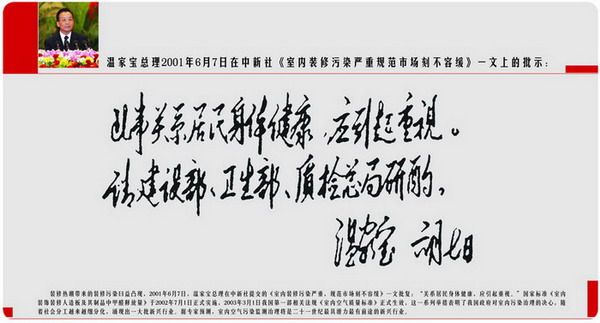 温家宝总理2001年6月7日在中新社《室内装修污染严重规范市场刻不容缓》一文上的批示：
此事关系居民身体健康，应引起重视。
请建设部、卫生部、质检总局研酌。
温家宝 六月七日
装修热潮带来的装修污染日益凸现，2001年6月7日，温家宝总理在中新社提交的《室内装修污染严重，规范市场刻不容缓》一文批复：“关系居民身体健康，应引起重视。”国家标准《室内
装饰装修人造板及其制品中甲醛释放量》于2002年7月1日正式实施、2003年3月1日我国第一部相关法规《室内空气质量标准》正式生效，这一系列举措表明了我国政府对室内污染治理的决心。随
着社会分工越来越细分化，涌现出一大批新兴行业。据专家预测，室内空气污染监测治理将是二十一世纪最具潜力最有前途的新兴行业。